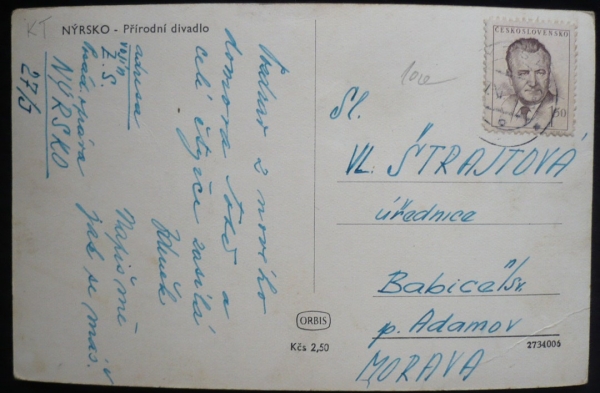 KT
NÝRSKO - Přírodní divadlo
Pozdrav z nového
domova Tobě a
celé čtyřce zasílá
Zdeněk
Napiš mi
jak se máš.
adresa
Z. S.
NÝRSKO
27/J
ČESKOSLOVENSKO
1,50
Sl.
VL. ŠTRAJTOVÁ
úřednice
Babice n/Sv.
p. Adamov
MORAVA
ORBIS
Kčs 2,50
2734006